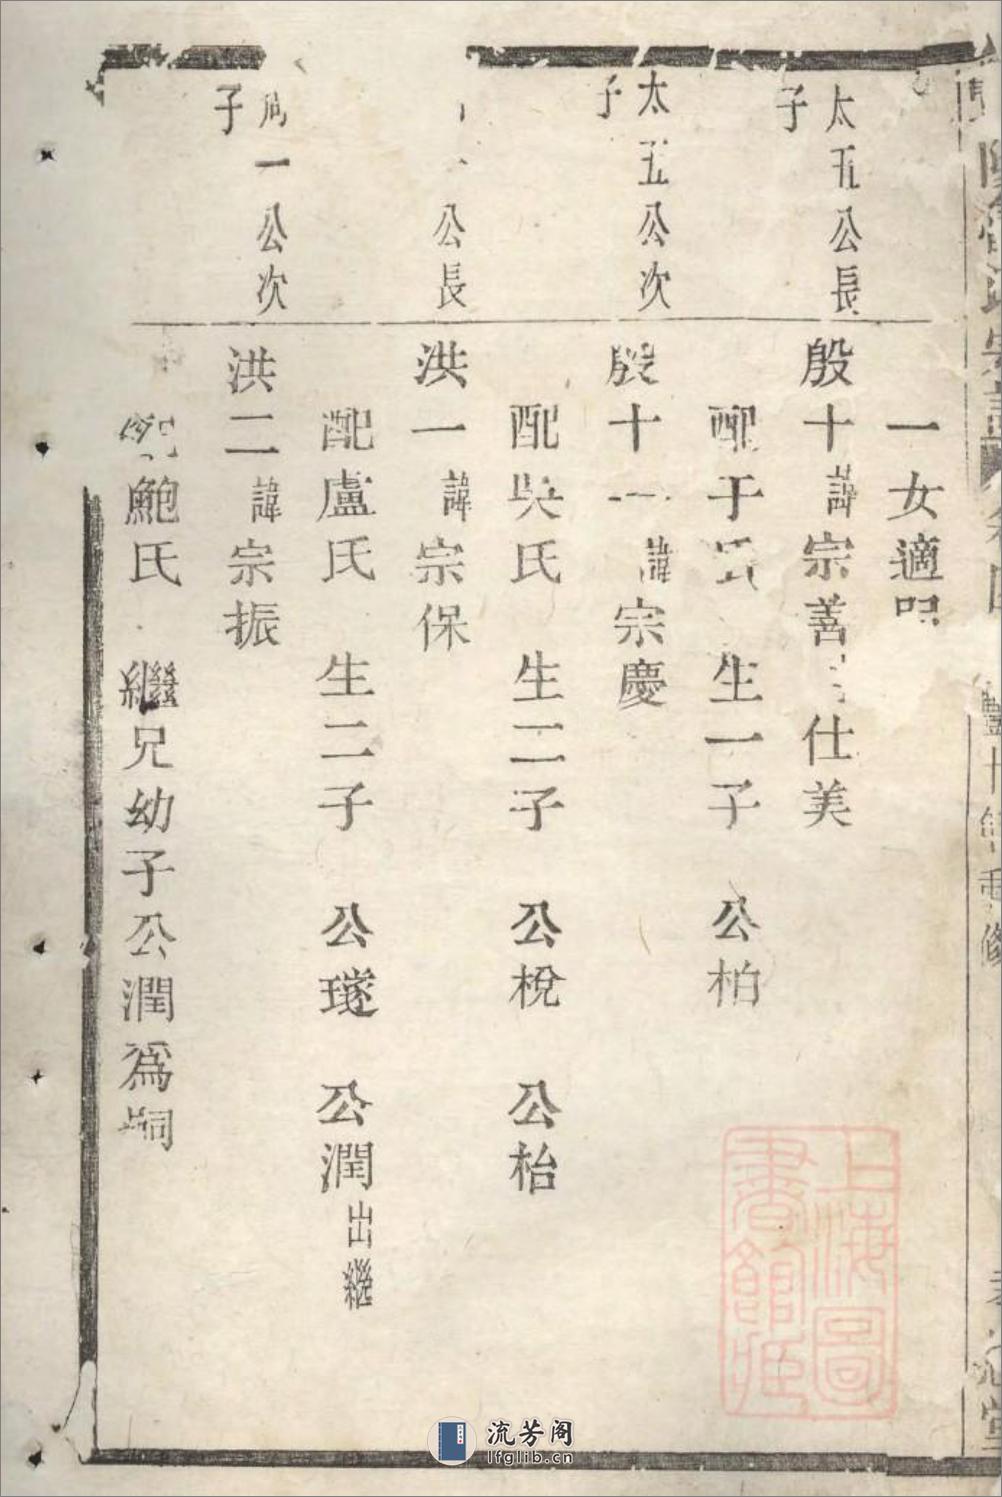 一女適
太五公長
子
殷十諱宗善 仕美
配于氏 生一子 公柏
太五公次
子
殷十一諱宗慶
配吳氏 生二子 公梲 公枱
公長
洪一諱宗保
配盧氏 生二子 公璲 公潤出繼
一公次
子
洪二諱宗振
配鮑氏 繼兄幼子公潤爲嗣
上海圖
書館藏
流芳阁
lfglib.cn